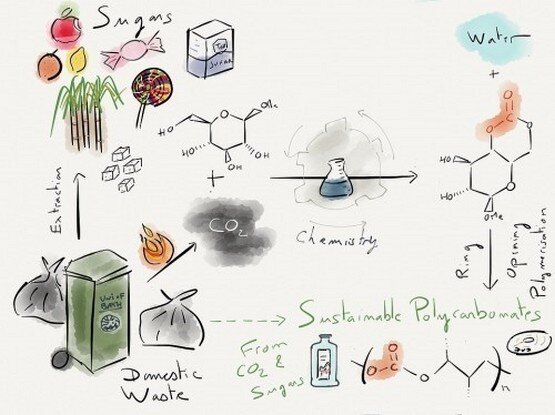 Sugars
Ton
SUGAR
Water
+
O
C
O
O
HO
O
OMe
HO
OH
OH
+
HO
HO
O
OMe
Extraction
CO2
Chemistry
Ring
Opining
Polymerisation
UNI OF
BATH
Domestic
Waste
Sustainable Polycarbonates
From
CO2 &
Sugars
O
C
O
O
n